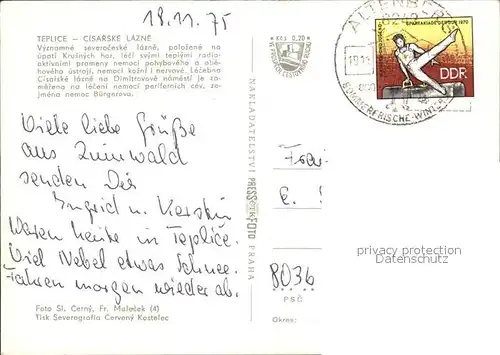 18.11.75
TEPLICE - CÍSAŘSKÉ LÁZNĚ
Významné severočeské lázně, položené na
úpatí Krušných hor, léčí svými teplými radio-
aktivními prameny nemoci pohybového a obě-
hového ústrojí, nemoci kožní i nervové. Léčebna
Císařské lázně na Dimitrovově náměstí je za-
měřena na léčení nemocí periferních cév, ze-
jména nemoc Bürgerova.
Kčs 0,20
Viele liebe Grüße
aus Zinnwald
senden Dir
Ingrid u. Kerstin
Waren heute in Teplice.
Viel Nebel etwas Schnee.
Fahren morgen wieder ab.
Foto Sl. Černý, Fr. Maleček (4)
Tisk Severografia Červený Kostelec
NAKLADATELSTVÍ PRESSFOTO PRAHA
ALTENBERG
SOMMERFRISCHE-WINTER
SPARTAKIADE 1970
DDR
8036
PSČ
Okres:
copyright-protected